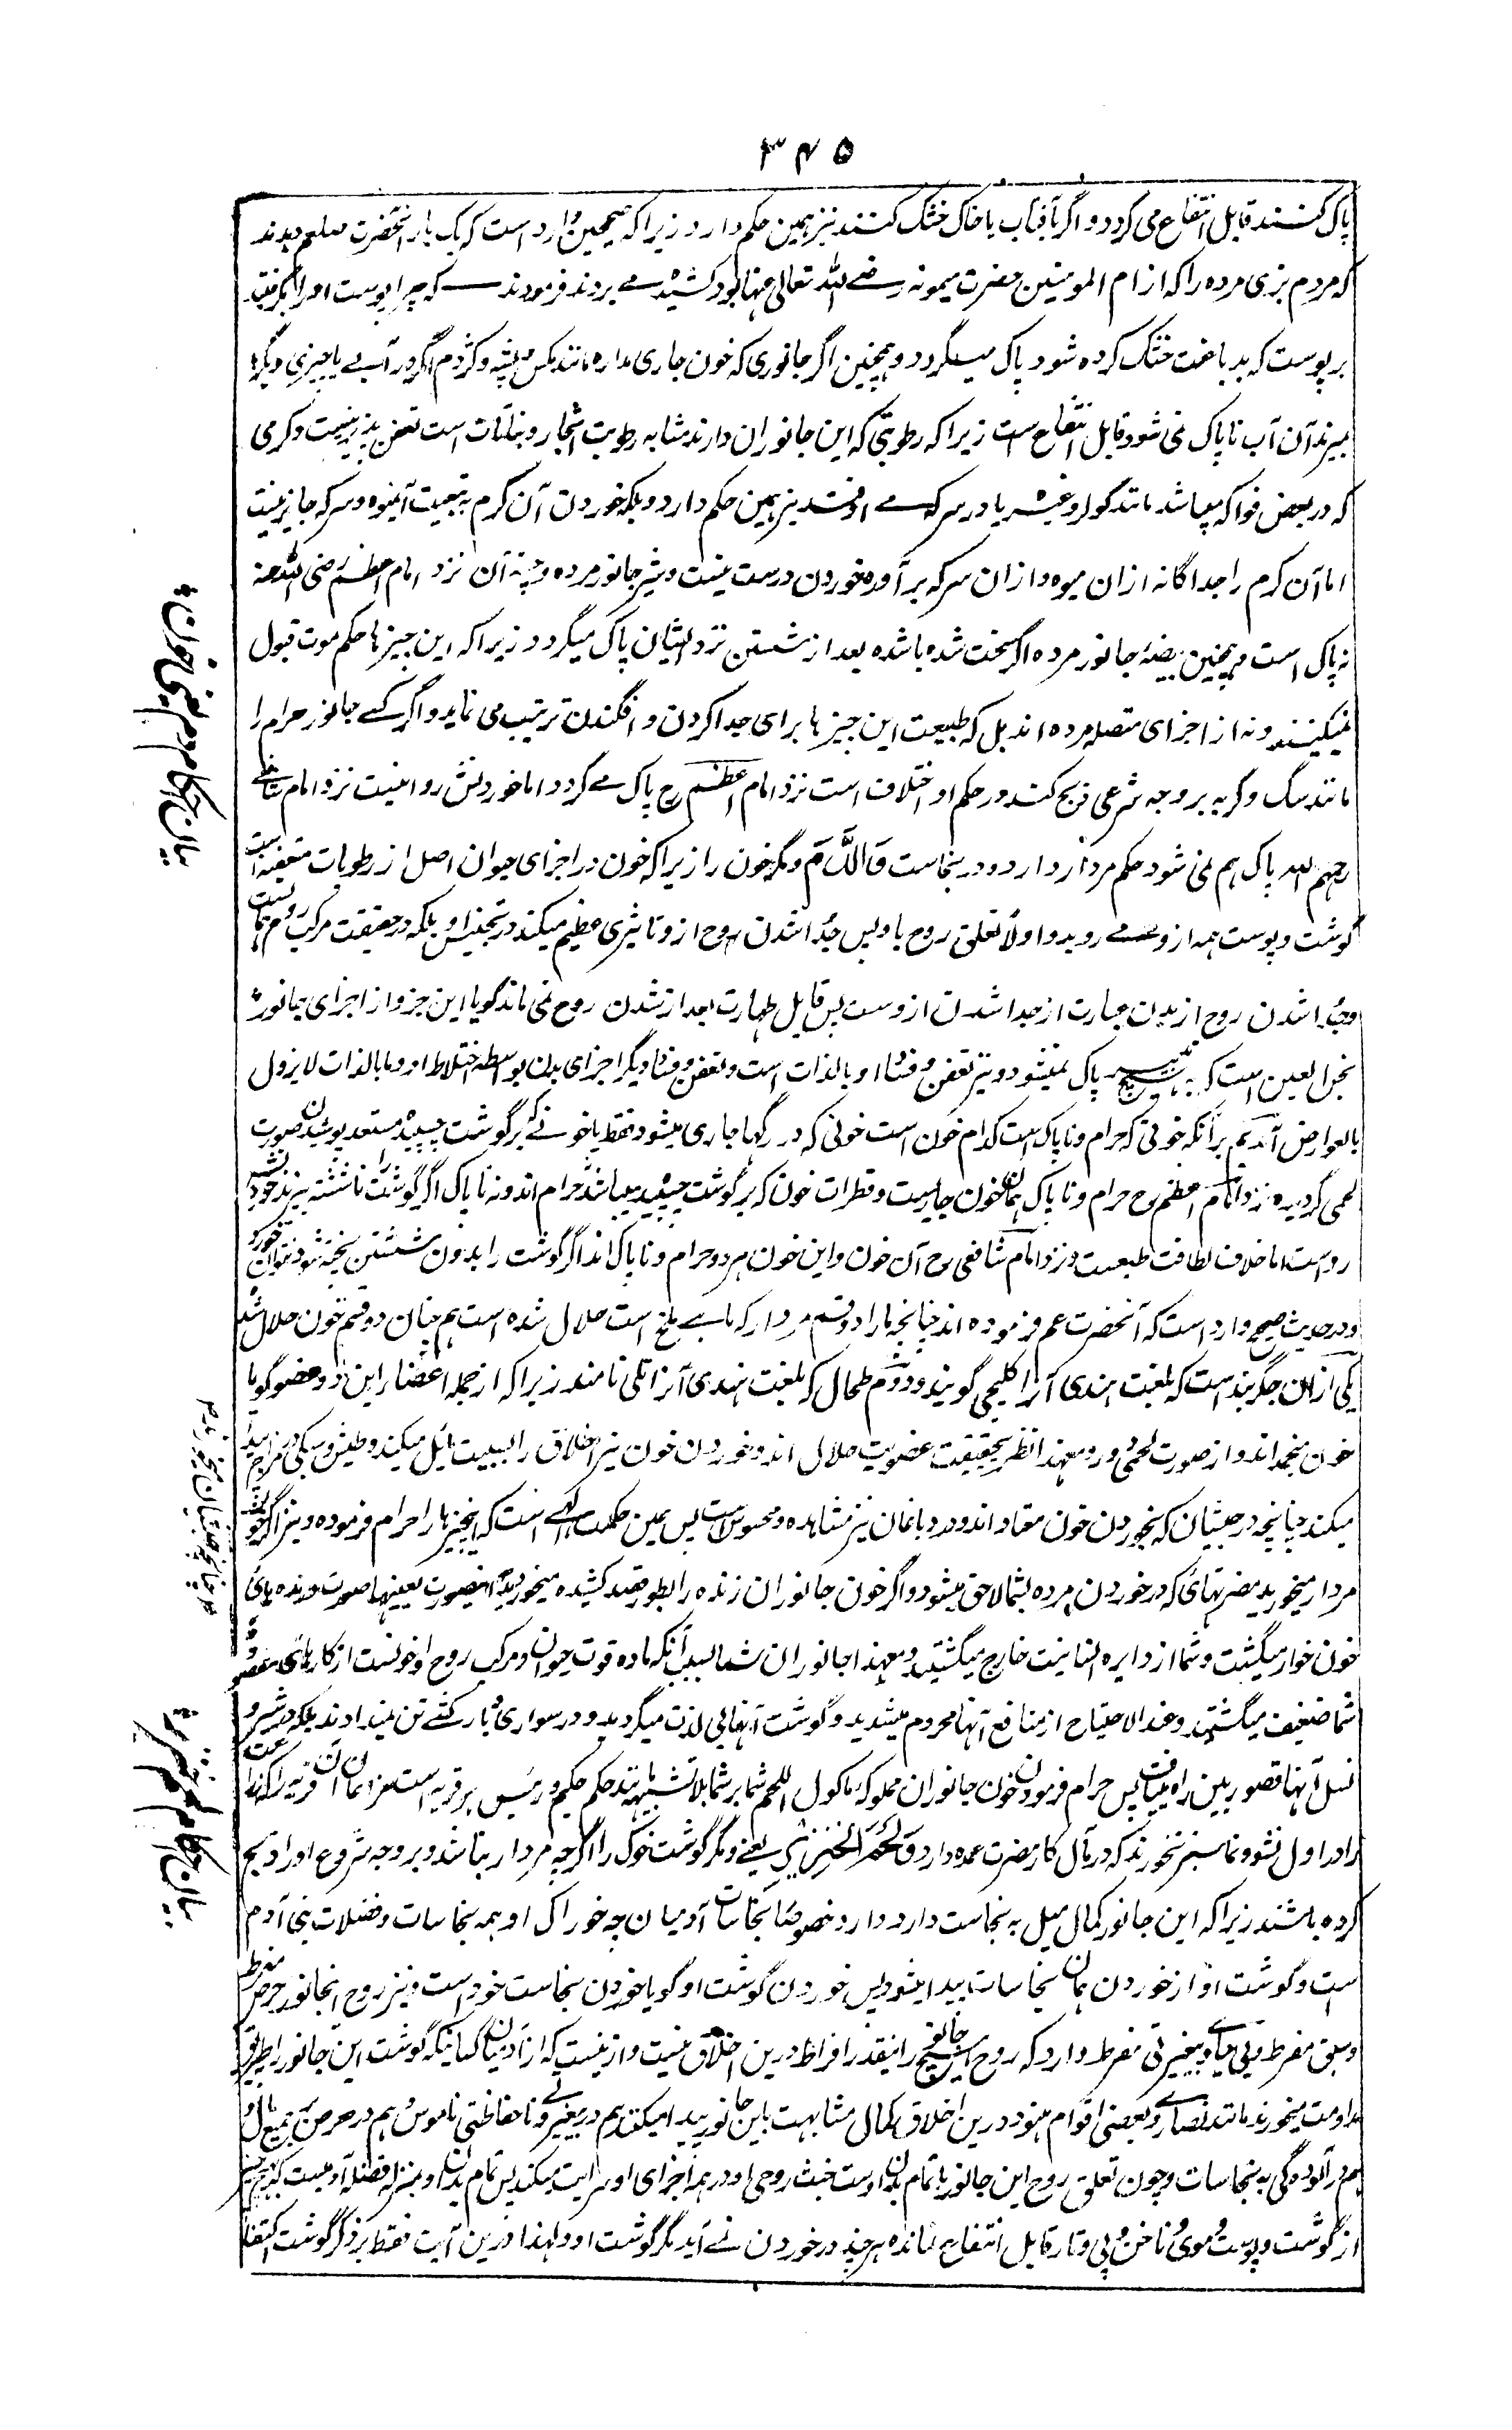 ۳۴۵
پاک کنند قابل انتفاع می گردد و اگر بآفتاب یا خاک خشک کنند نیز همین حکم دارد زیراکه در صحیحین وارد است که یک بار آنحضرت صلعم دیدند
که مردم بزی مرده را که از ام المومنین حضرت میمونه رضے اللہ تعالی عنہا بود کشیده مے بردند فرمودند که چرا پوست او را نگرفتید
هر پوست که بدباغت خشک کرده شود پاک میگردد و همچنین اگر جانوری که خون جاری ندارد مانند مگس و پشه و کژدم اگر در آب یا چیزی دیگر
بمیرند آن آب ناپاک نمی شود قابل انتفاع است زیراکه رطوبتی که این جانوران دارند مشابه رطوبت اشجار و نباتات است تعفن پذیر نیست و کرمی
که در بعض فواکه میباشد مانند گولر وغیره یا در سرکه مے افتند نیز همین حکم دارد و بلکه خوردن آن کرم به تبعیت آن میوه و سرکه جایز نیست
اما آن کرم را جداگانه ازان میوه و ازان سرکه برآورده خوردن درست نیست و شیر جانور مرده و پنیر آن نزد امام اعظم رضی اللہ عنہ
نه پاک است و همچنین بیضۂ جانور مرده اگر سخت شده باشد بعد از شستن نزد ایشان پاک میگردد زیراکه این چیزها حکم موت قبول
نمیکنند و نه از اجزای متصله مرده اند بل که طبیعت این چیزها برای جدا کردن و افگندن ترتیب می نماید و اگر کسے جانور حرام را
مانند سگ و گربه بر وجه شرعی ذبح کند در حکم او اختلاف است نزد امام اعظم رح پاک مے گردد اما خوردنش روا نیست نزد امام شافعے
رحمہم اللہ پاک هم نمی شود حکم مردار دارد و در نجاست وَالدَّمَ و مگر خون را زیراکه خون در اجزای حیوان اصل از رطوبات متعفنه است
گوشت و پوست همه از وے مے روید و اولاً تعلق روح باو پس جدا شدن روح ازو تاثیری عظیم میکند در تنجیس او بلکه در حقیقت مرکب روح همان است
و جدا شدن روح از بدن عبارت از جدا شدن ازوست پس قابل طهارت بعد از شدن روح نمی ماند گویا این جزو از اجزای جانور
نجس العین است که به هیچ پاک نمیشود و نیز تعفن و فساد او بالذات است و تعفن و فساد دیگر اجزای بدن بواسطه اختلاط او وما بالذات لا یزول
بالعوارض آمدیم برآنکه خونی که حرام و ناپاک است کدام خون است خونی که در رگها جاری میشود فقط یا خونے که بر گوشت چسپیده مستعد پوشیدن صورت
لحمی گردیده نزد امام اعظم رح حرام و ناپاک همان خون جاریست و قطرات خون که بر گوشت چسپیده میباشد حرام اند و نه ناپاک اگر گوشت را ناشسته بپزند خوردنش
رواست اما خلاف لطافت طبعست و نزد امام شافعی رح آن خون و این خون هر دو حرام و ناپاک اند اگر گوشت را بدون شستن پخته شود نتوان خورد
و در حدیث صحیح وارد است که آنحضرت عم فرموده اند چنانچه ما را دو قسم مردار که ماهی و ملخ است حلال شده است هم چنان دو قسم خون حلال شد
یکی ازان جگربند است که بلغت هندی آنرا کلیجی گویند و دوم طحال که بلغت هندی آنرا تلی نامند زیراکه از جمله اعضا این دو عضو گویا
خون منجمد اند و از صورت لحمی دور و معهذا نظر بحقیقت عضویت حلال اند و خوردن خون نیز اخلاق را بسبعیت مائل میکند و طیش و سبکی در مزاج پیدا
میکند چنانچه در حبشیان که بخوردن خون معتاد اند و در دباغان نیز مشاهده و محسوس است پس همین حکمت الٰهے است که اینچیزها را حرام فرموده و نیز اگر خون
مردار میخورید مضرتهائ که در خوردن مرده بشما لاحق میشود و اگر خون جانوران زنده را بطور فصد کشیده میخوردید اینصورت بعینها صورت درنده های
خون خوار میگشت و شما از دایره انسانیت خارج میگشتید و معهذا جانوران شما بسبب آنکه ماده قوت حیوان و مرکب روح او خونست از کارهای
شما ضعیف میگشتند و عند الاحتیاج از منافع آنها محروم میشدید و گوشت آنها بی لذت میگردید و در سواری و بار کشے تن نمیدادند بلکه در شیر و
نسل آنها قصور بین راه مییافت پس حرام فرمودن خون جانوران مملوکه ماکول اللحم شما بر شما بلا تشبیه مانند حکم حکیم و رئیس هر قریه است مزارعان آن قریه را که
را در اول نشو و نما سبز نخورند که در مآل کار مضرت عمده دارد وَلَحْمَ الْخِنْزِيْرِ یعنے و مگر گوشت خوک را اگرچه مردار نباشد و بر وجه شروع او را ذبح
کرده باشند زیراکه این جانور کمال میل به نجاست دارد دارد خصوصًا نجاسات آدمیان چه خوراک او همه نجاسات و فضلات بنی آدم
است و گوشت او از خوردن همان نجاسات پیدا میشود پس خوردن گوشت او گویا خوردن نجاست خود است و نیز روح اینجانور حرص مفرط
و شبق مفرط و بی حیائی و بیغیرتی مفرط دارد که روح هیچ جانور را اینقدر افراط درین اخلاق نیست و ازینست که از آدمیان کسانیکه گوشت این جانور را بطریق
مداومت میخورند مانند نصاری و بعضی اقوام هنود درین اخلاق کمال مشابهت باین جانور پیدا میکنند هم در بیغیرتے و ناحفاظتی ناموس و هم در حرص بر جمع مال و
هم در آلودگی به نجاسات و چون تعلق روح این جانور با تمام بدن اوست خبث روحی او در همه اجزای او سرایت میکند پس تمام بدن او بمنزله فضلۂ آدمیست که هیچ چیز
از گوشت و پوست و موی و ناخن و پی و تار قابل انتفاع نمانده هر چند در خوردن نمے آید مگر گوشت او و لهذا درین آیت فقط بر ذکر گوشت اکتفا
بیان احکام حرام بودن خون
بیان احکام گوشت خوک